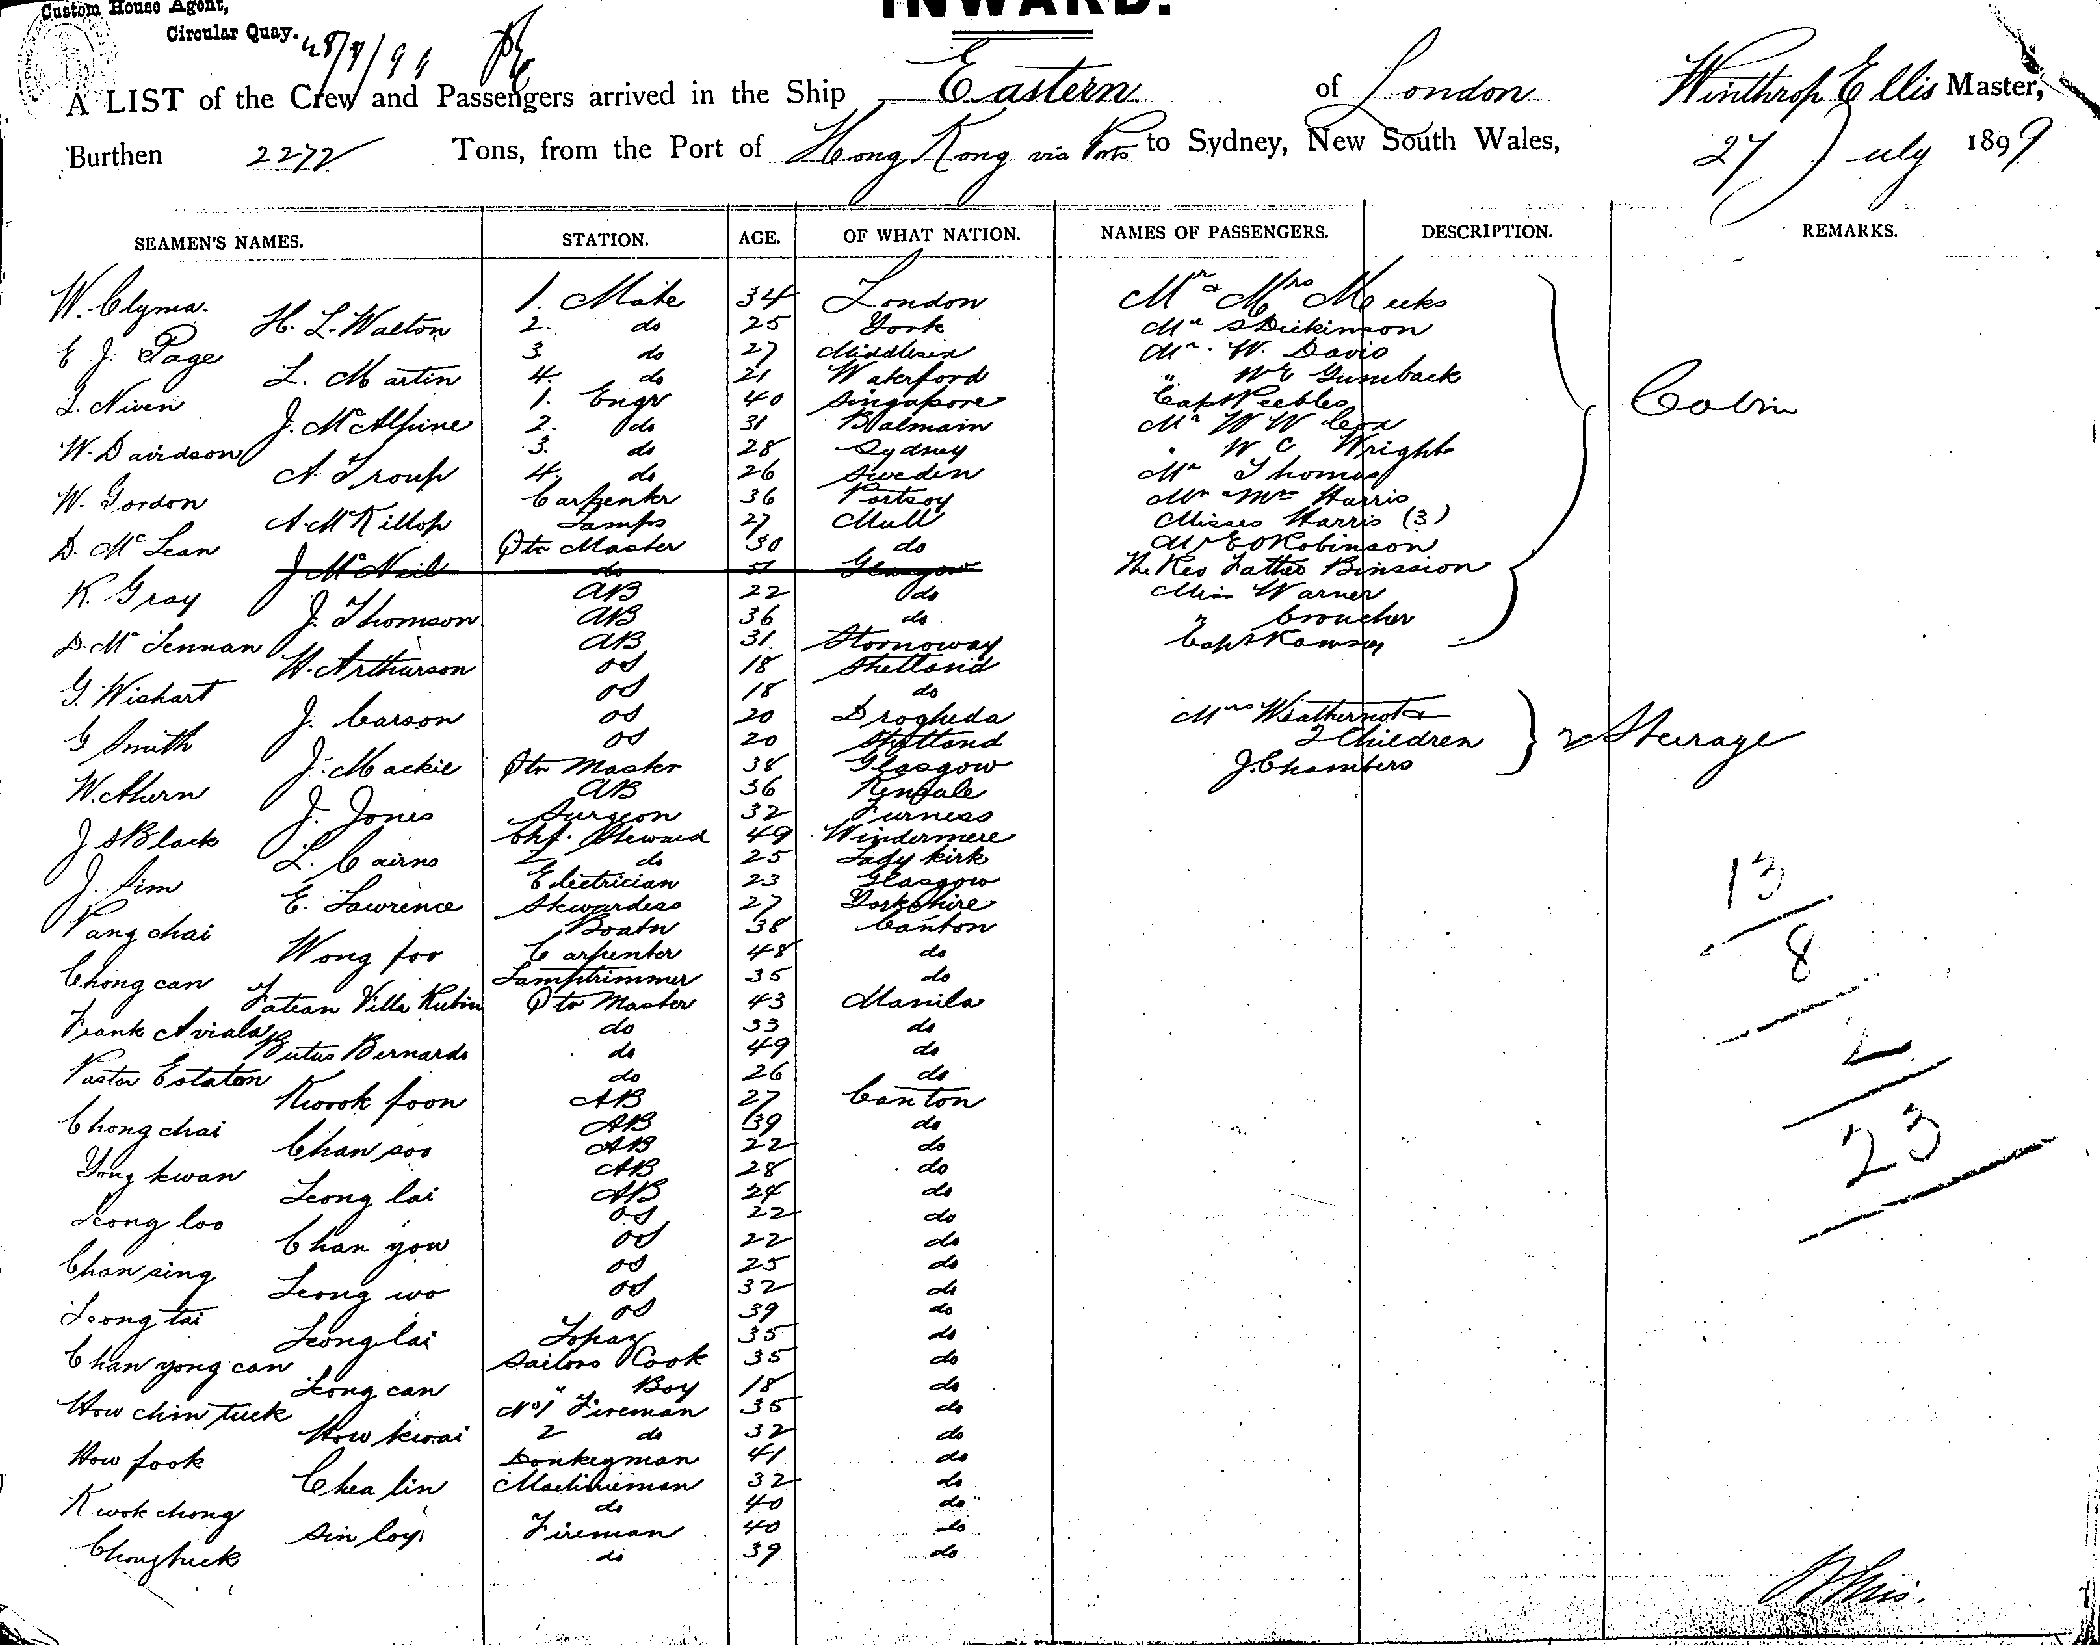 Custom House Agent,
Circular Quay.
INWARD.
A LIST of the Crew and Passengers arrived in the Ship Eastern of London Winthrop Ellis Master,
Burthen 2272 Tons, from the Port of Hong Kong via Ports to Sydney, New South Wales, 27 July 1899
SEAMEN'S NAMES. STATION. AGE. OF WHAT NATION. NAMES OF PASSENGERS. DESCRIPTION. REMARKS.
W. Clyma. 1. Mate 34 London Mr & Mrs Meeks
H. L. Walton 2. do 25 York Mr S Dickinson
E J. Page 3 do 27 Middlesex Mr. W. Davis
L. Martin 4. do 21 Waterford " W E Gumback
L. Niven 1. Engr 40 Singapore Capt Peebles Cabin
J. McAlpine 2. do 31 Balmain Mr W W Cox
W. Davidson 3. do 28 Sydney " W C Wright
A. Troup 4. do 26 Sweden Mr Thomas
W. Gordon Carpenter 36 Portsoy Mr & Mrs Harris
A McKillop Lamps 27 Mull Misses Harris (3)
D. McLean Qtr Master 30 do Mr E O Robinson
J McNeil do 51 Glasgow The Rev Father
K. Gray AB 22 do Miss Warner
J. Thomson AB 36 do " Croucher
D. McLennan AB 31 Stornoway Capt Ramsay
W. Arthurson OS 18 Shetland
G. Wishart OS 18 do
J. Carson OS 20 Drogheda Mrs &
G Smith OS 20 Shetland 2 Children Steerage
J. Mackie Qtr Master 38 Glasgow J. Chambers
W. Ahern AB 36 Kinsale
J. Jones Surgeon 32 Furness
J S Black Chf. Steward 49 Windermere
L. Cairns 2 do 25 Ladykirk
J. Sim Electrician 23 Glasgow
E. Lawrence Stewardess 27 Yorkshire
Pang chai Boatn 38 Canton
Wong foo Carpenter 48 do
Chong can Lamptrimmer 35 do
Villa Rubin Qtr Master 43 Manila
Frank Aviala do 33 do
Rutus Bernardo do 49 do
Pastor Estaton do 26 do
Kwok foon AB 27 Canton
Chong chai AB 39 do
Chan soo AB 22 do
Yong kwan AB 28 do
Leong lai AB 24 do
Leong loo OS 22 do
Chan yow OS 22 do
Chan sing OS 25 do
Leong wo OS 32 do
Leong tai OS 39 do
Leong lai Topaz 35 do
Chan yong can Sailors Cook 35 do
Leong can " Boy 18 do
How chin tuck No 1 Fireman 35 do
How kwai 2 do 32 do
How fook Donkeyman 41 do
Chea lin Machineman 32 do
Kwok chong do 40 do
Sin loy Fireman 40 do
Chong tuck do 39 do
13
8
2
23